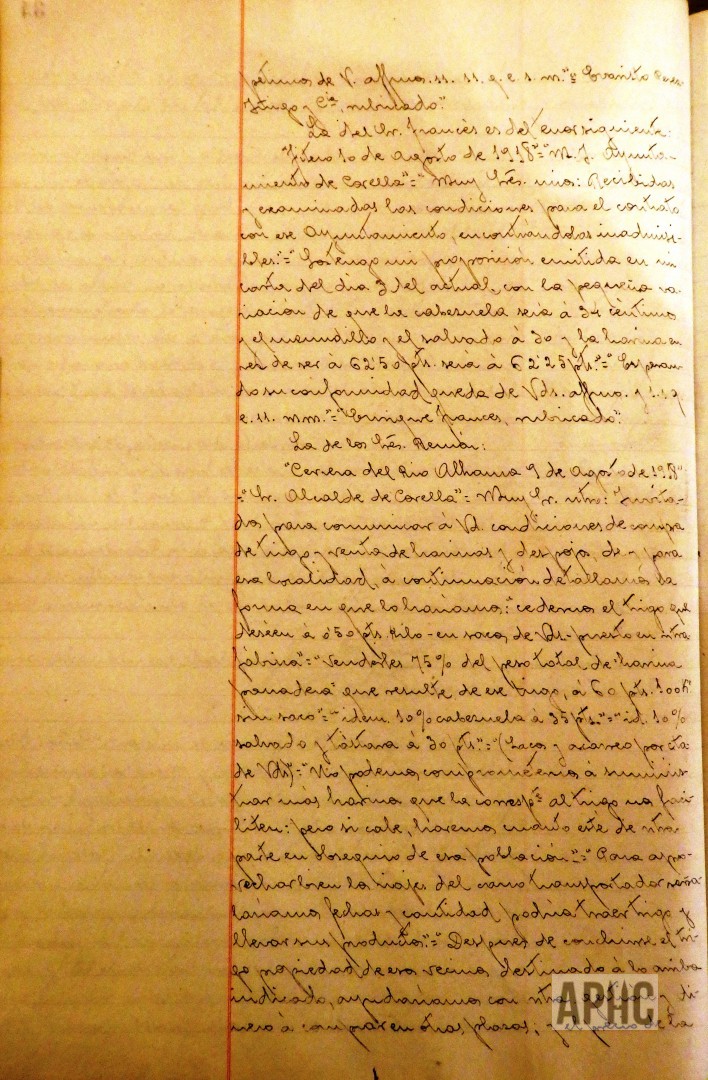 petimos de V. affmos. ss. ss. q. e. s. m."= Evaristo
Iñigo y Cía, rubricado".
La del Sr. Francés es del tenor siguiente:
"Fitero 10 de Agosto de 1918"="M. I. Ayunta-
miento de Corella"="Muy Sres. mios: Recibidas
y examinadas las condiciones para el contrato
con ese Ayuntamiento, encontrándolas inadmisi-
bles."="Sostengo mi proposición emitida en mi
carta del dia 3 del actual, con la pequeña va-
riación de que la cabezuela será á 34 céntimos
y el menudillo y el salvado á 30 y la harina en
vez de ser á 62'50 pts. será á 62'25 pts."="Esperan-
do su conformidad queda de Vds. affmo. y s. s. q.
e. ss. mm."="Enrique Frances, rubricado".
La de los Sres. Remón:
"Cervera del Rio Alhama 9 de Agosto de 1918"
="Sr. Alcalde de Corella"="Muy Sr. ntro: Invita-
dos para comunicar á Vd. condiciones de compra
de trigo y venta de harinas y despojos, de y para
esa localidad, á continuación detallamos la
forma en que lo haríamos: cedernos el trigo que
deséen á 0'50 pts. kilo - en sacos de Vds - puesto en ntra
fábrica"="Venderles 75% del peso total de harina
panadera que resulte de ese trigo, á 60 pts. 100 k
sin saco"="idem. 10% cabezuela á 35 pts."="id. 10%
salvado y tástara á 30 pts."="(Sacos y acarreo por cta
de Vds)"="No podemos comprometernos á suminis-
trar más harina que la correspte al trigo nos faci-
liten: pero si cabe, haremos cuanto esté de ntra
parte en obsequio de esa población."="Para apro-
vechar bien los viajes del carro transportador seña-
laríamos fechas y cantidad, podría traer trigo y
llevar sus productos."="Despues de concluirse el tri-
go propiedad de esos vecinos destinado á lo arriba
indicado, ayudaríamos con ntra gestion y di-
nero á comprar en otras plazas; y el precio de la
APHC